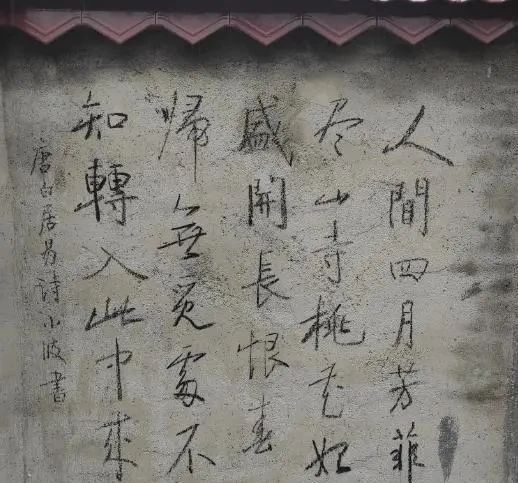 人間四月芳菲
尽山寺桃花始
盛開長恨春
帰無覓處不
知轉入此中來
唐白居易詩小波書